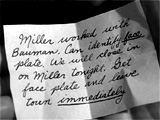 Miller worked with
Bauman. Can identify face
plate. We will close in
on Miller tonight. Get
face plate and leave
town immediately